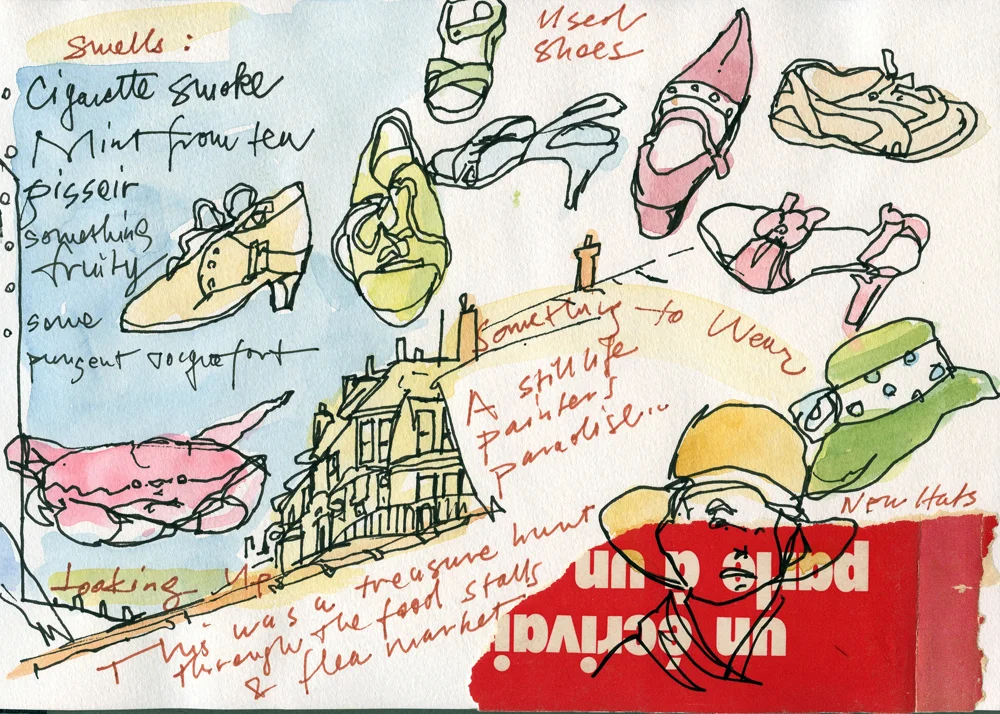 Smells:
Cigarette smoke
Mint from tea
pissoir
something
fruity
some
pungent rocquefort
Used
Shoes
Something to Wear
A still life
painters
paradise...
New Hats
Looking Up
This was a treasure hunt
through the food stalls
& flea market
parle à un
un écrivai